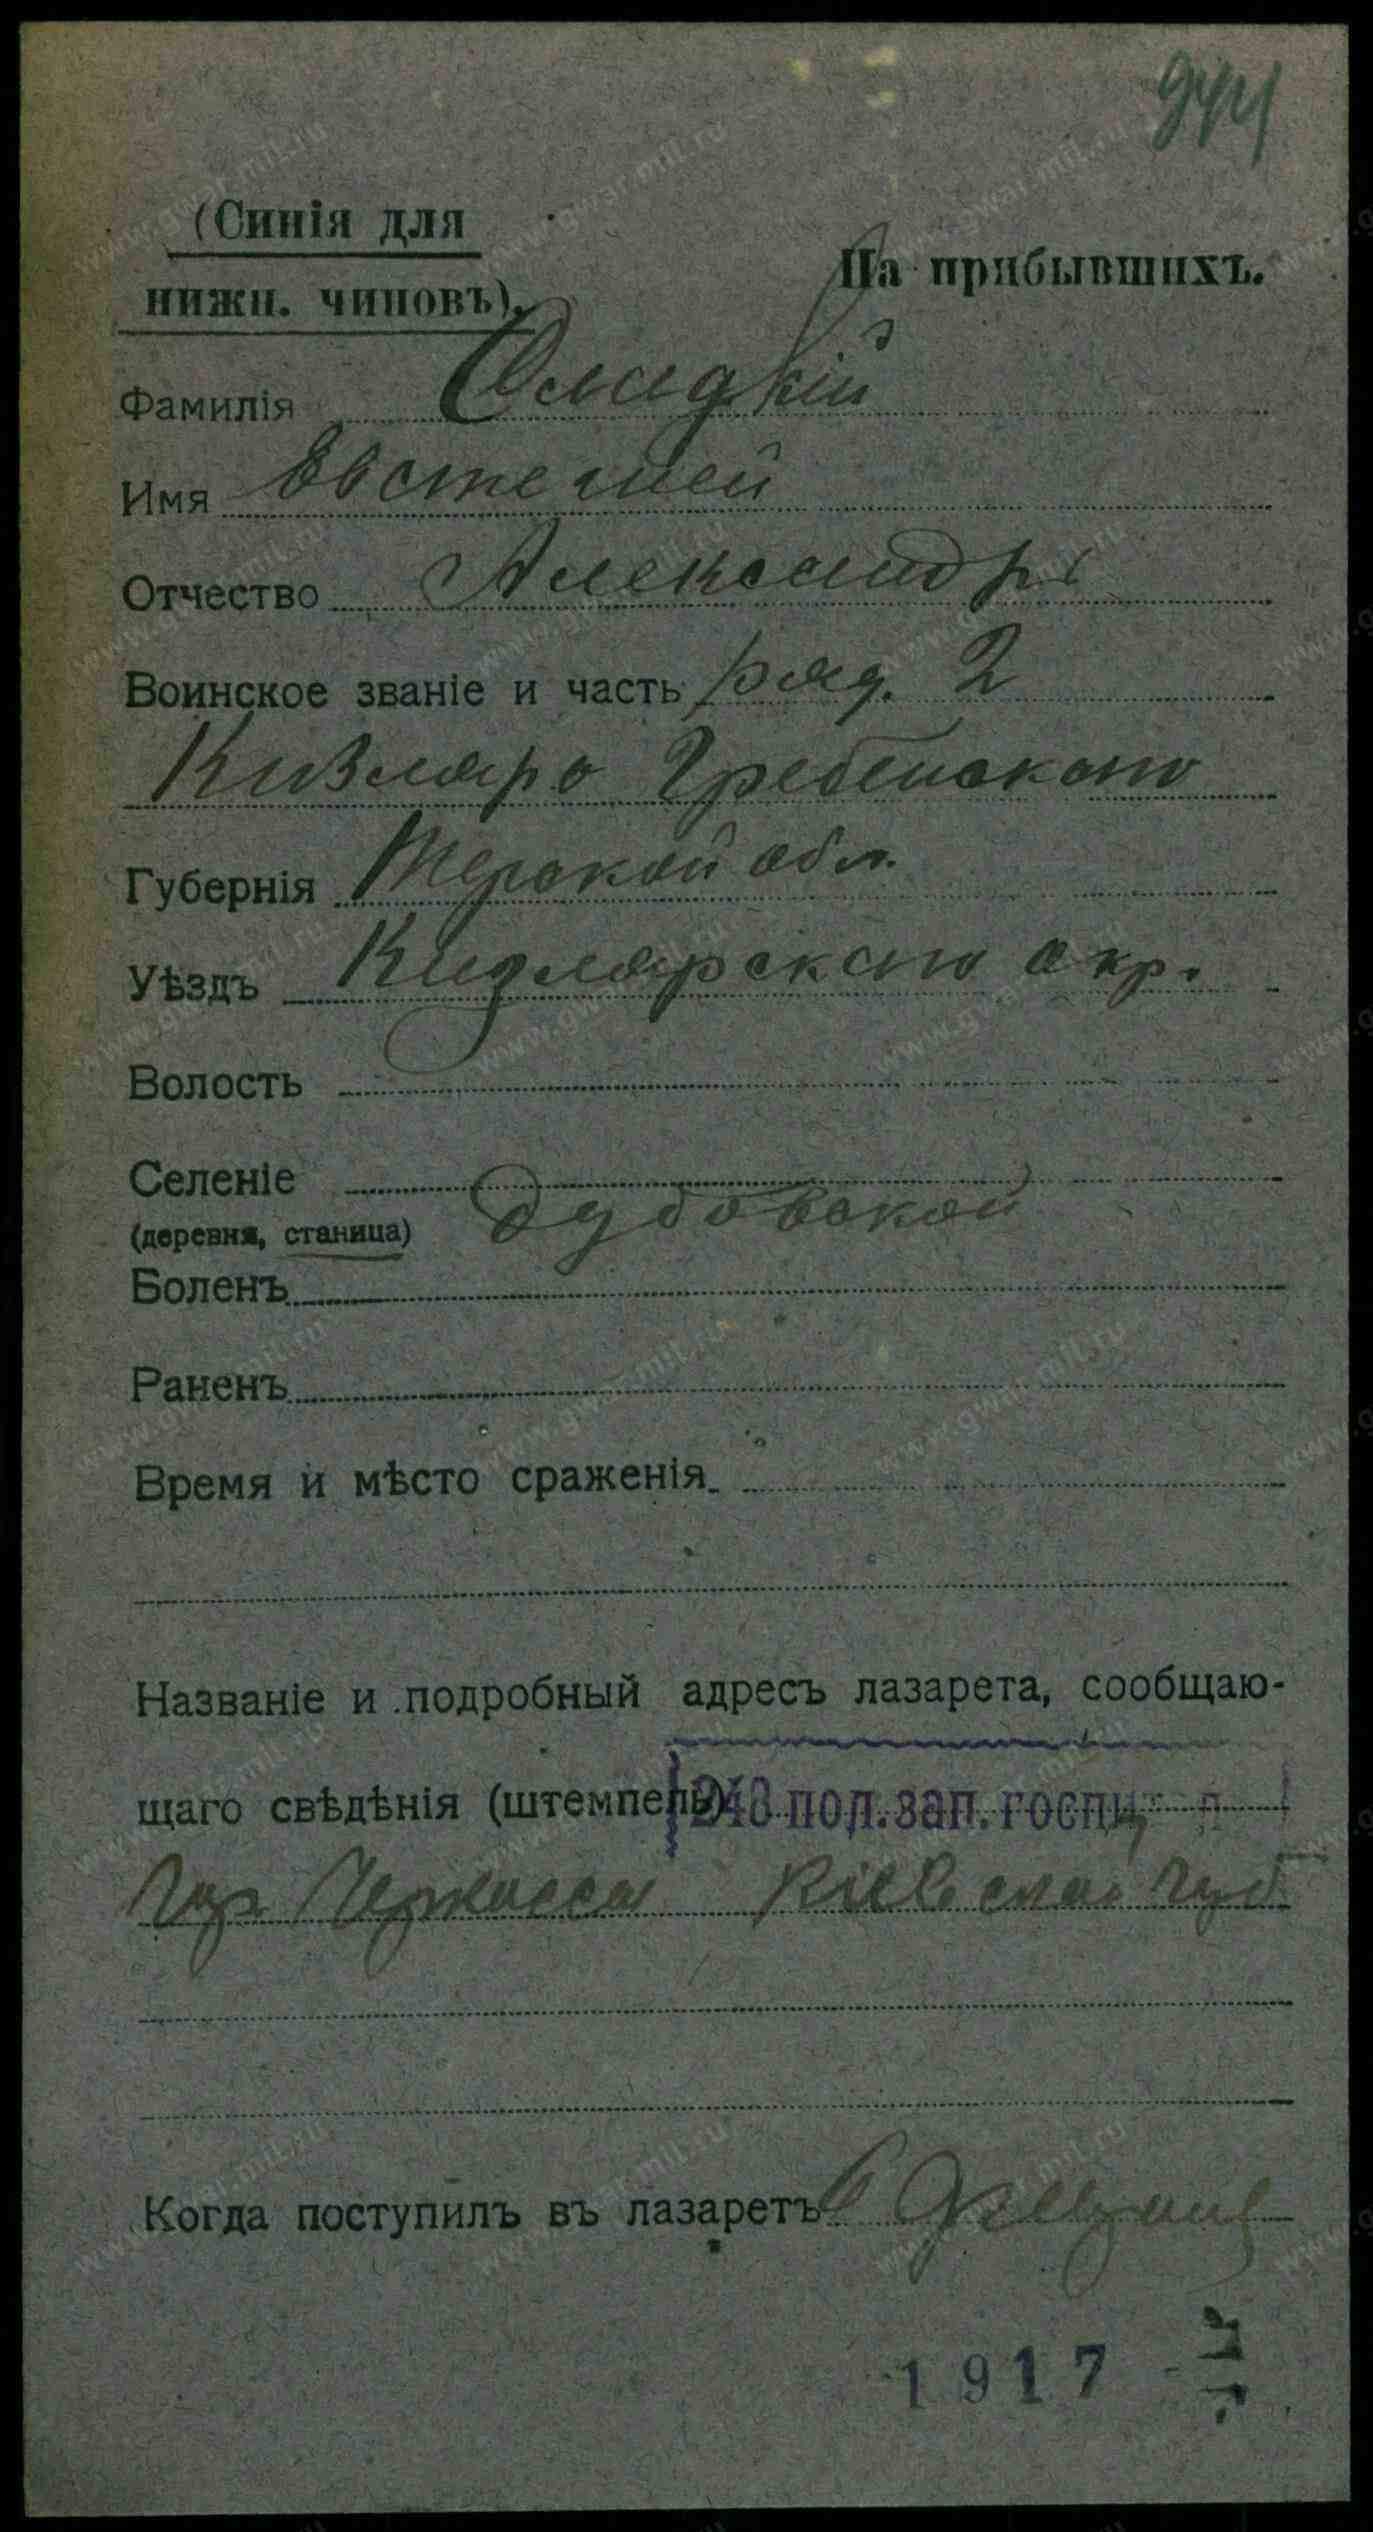 944
(Синія для
нижн. чиновъ).
На прибывшихъ.
Фамилія Сладкій
Имя Евстегней
Отчество Александр
Воинское званіе и часть ряд. 2
Кизляро Гребенскаго
Губернія Терской обл.
Уѣздъ Кизлярскаго окр.
Волость
Селеніе
(деревня, станица) Дубовской
Боленъ
Раненъ
Время и мѣсто сраженія
Названіе и подробный адресъ лазарета, сообщаю-
щаго свѣдѣнія (штемпель) 243 пол. зап. госпит
Гор. Черкассы Кіевской Губ
Когда поступилъ въ лазаретъ 6
1917 г.
www.gwar.mil.ru